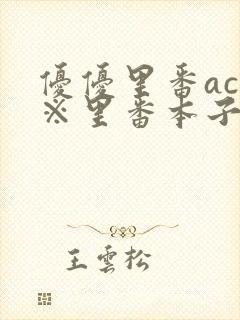 優優里番ac
※里番本子
王雲松